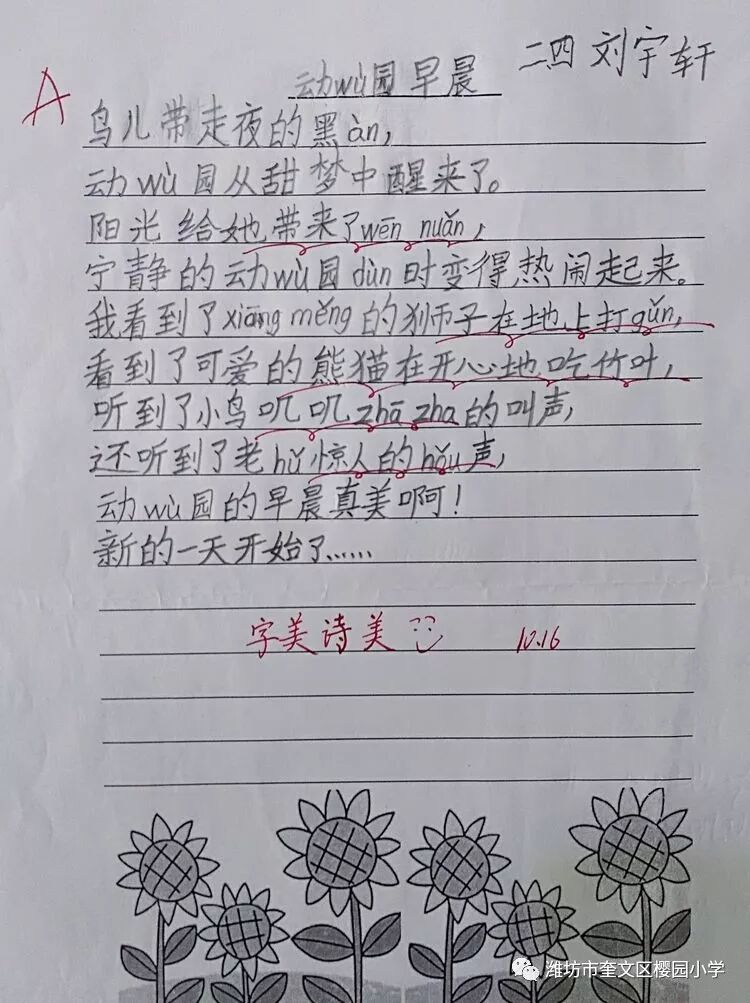 动wù园早晨
二四 刘宇轩
A
鸟儿带走夜的黑àn,
动wù园从甜梦中醒来了。
阳光给她带来了wēn nuǎn,
宁静的动wù园dùn时变得热闹起来。
我看到了xiāng měng的狮子在地上打gǔn,
看到了可爱的熊猫在开心地吃竹叶,
听到了小鸟叽叽zhā zha的叫声,
还听到了老hǔ惊人的hǒu声,
动wù园的早晨真美啊!
新的一天开始了……
字美诗美
10.16
潍坊市奎文区樱园小学